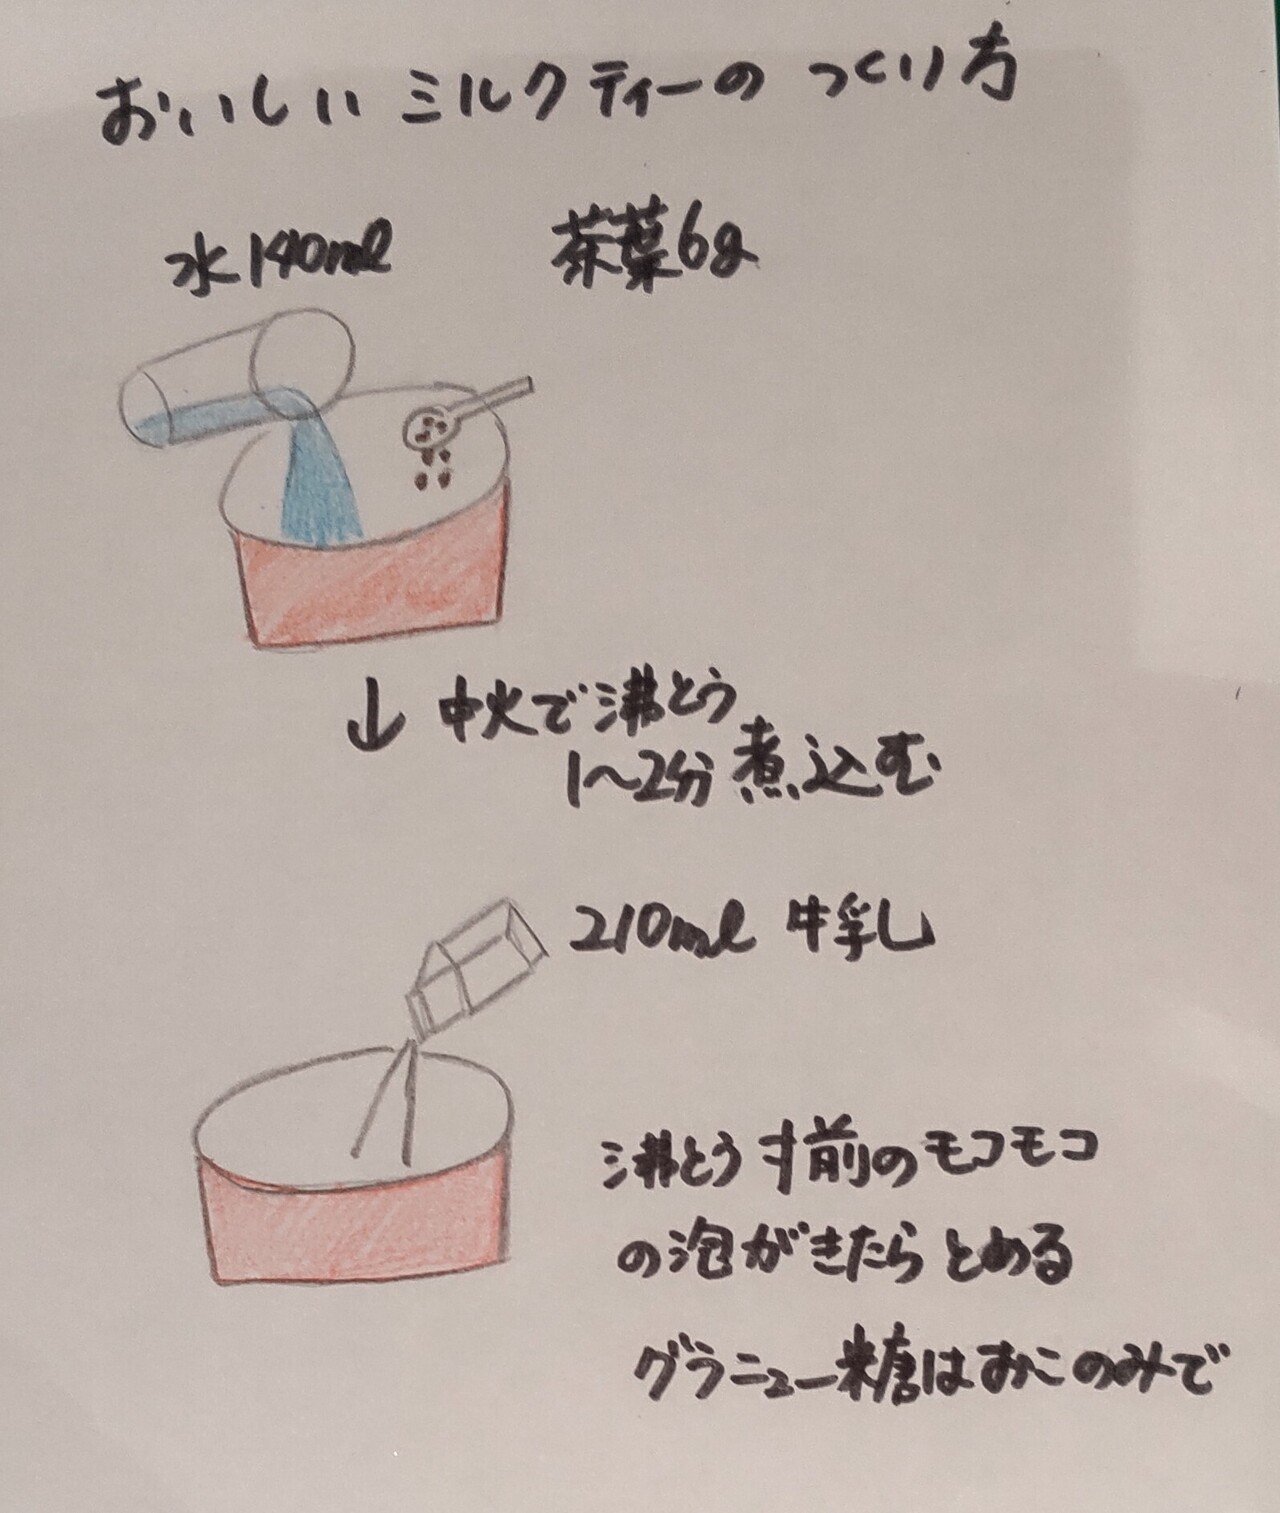 おいしいミルクティーのつくり方
水140ml 茶葉6g
↓ 中火で沸とう
1〜2分煮込む
210ml 牛乳
沸とう寸前のモコモコ
の泡がきたらとめる
グラニュー糖はおこのみで